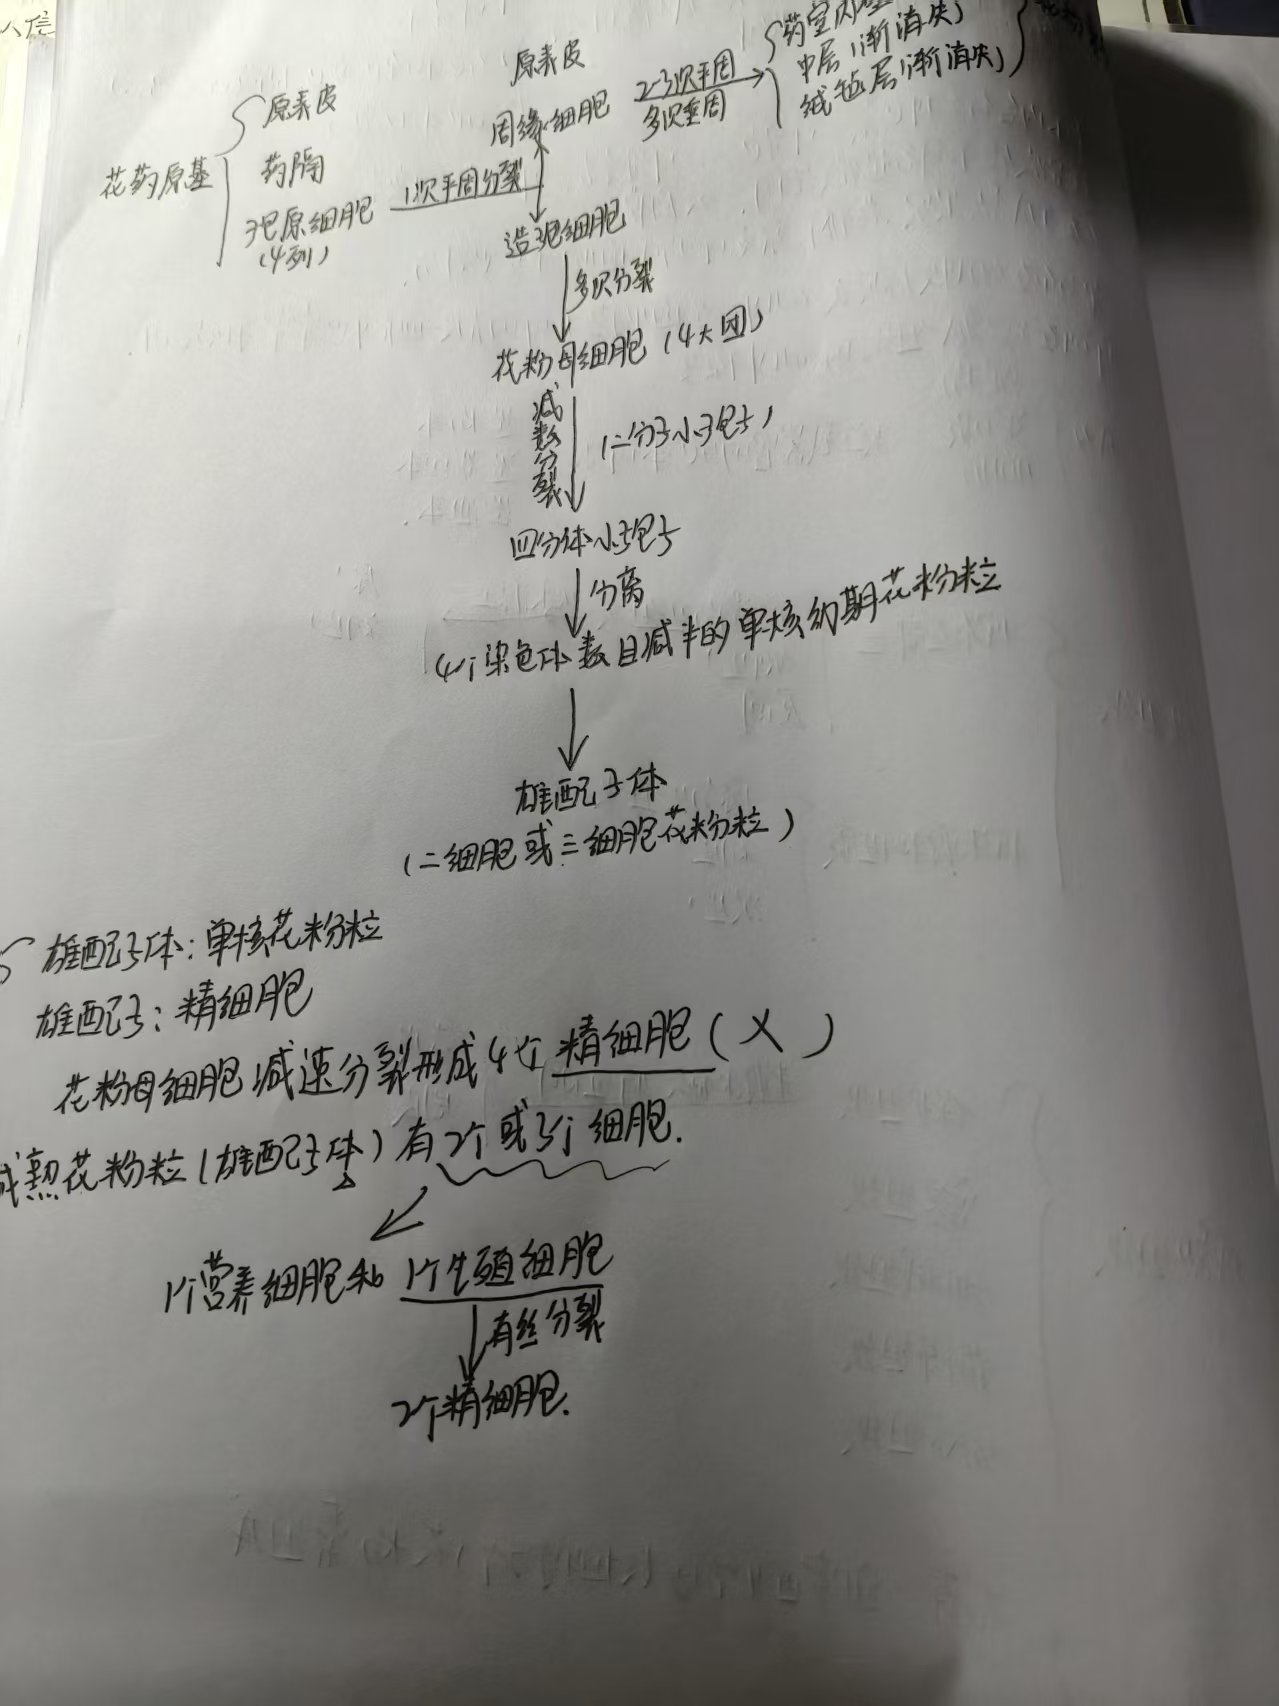 原表皮
药室内壁
中层(渐消失)
绒毡层(渐消失)
原表皮
周缘细胞
2-3次平周
多次垂周
花药原基
药隔
孢原细胞
(4列)
1次平周分裂
造孢细胞
多次分裂
花粉母细胞(4大团)
减数分裂
(二分子小孢子)
四分体小孢子
分离
4个染色体数目减半的单核幼期花粉粒
雄配子体
(二细胞或三细胞花粉粒)
雄配子体:单核花粉粒
雄配子:精细胞
花粉母细胞减速分裂形成4个精细胞(X)
成熟花粉粒(雄配子体)有2个或3个细胞.
1个营养细胞和1个生殖细胞
有丝分裂
2个精细胞.